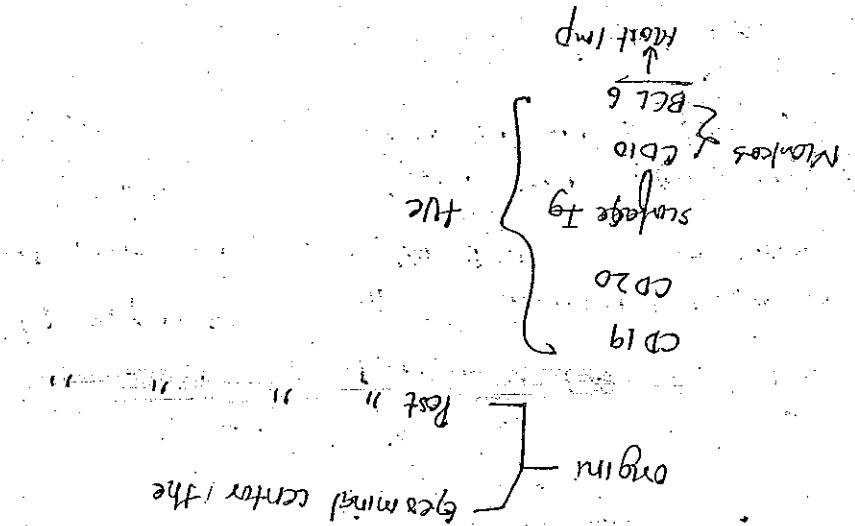 Germinal center; the
origin
Post " " " "
CD19
CD20
surface Ig
+ve
Markers CD10
BCL 6
Most Imp